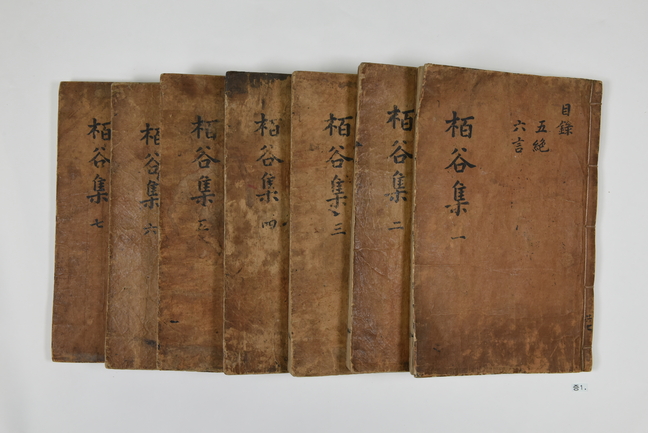 目錄
五絶
六言
栢谷集 一
栢谷集 二
栢谷集 三
栢谷集 四
栢谷集 五
栢谷集 六
栢谷集 七
증1.